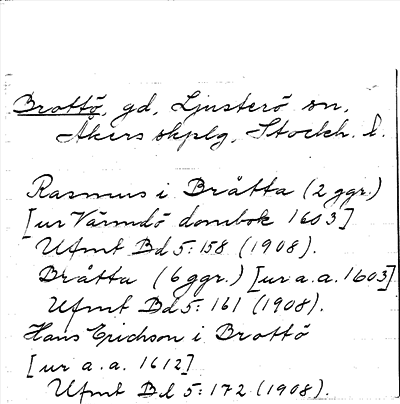 Brottö, gd, Ljusterö sn,
Åkers skplg, Stockh. l.
Rasmus i Bråtta (2 ggr.)
[ur Värmdö dombok 1603]
Ufmt Bd 5:158 (1908).
Bråtta (6 ggr.) [ur a.a. 1603]
Ufmt Bd 5: 161 (1908).
Hans Erichson i Brottö
[ur a.a. 1612]
Ufmt Bd 5:172 (1908).